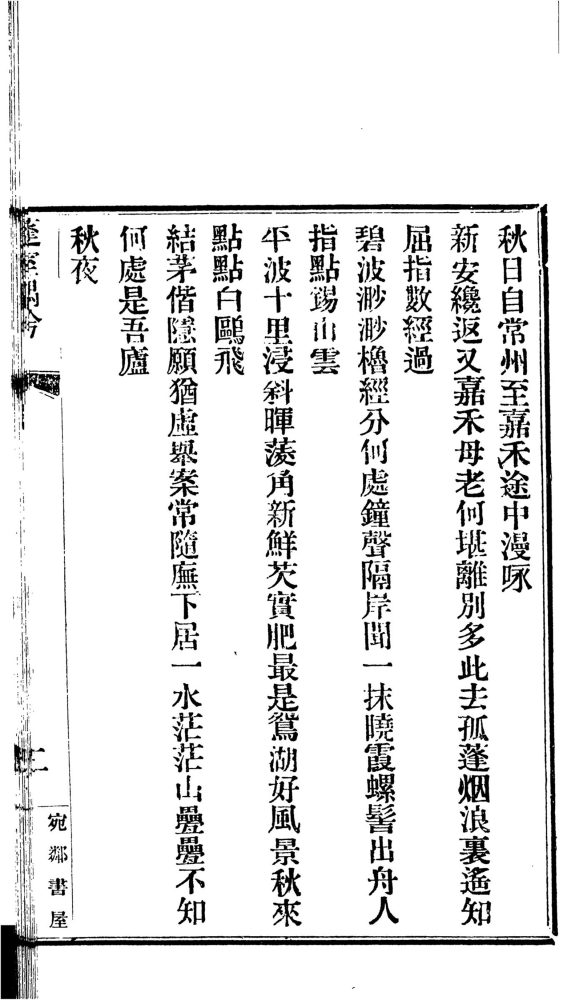 秋日自常州至嘉禾途中漫咏
新安纔返又嘉禾母老何堪離別多此去孤蓬烟浪裏遙知
屈指數經過
碧波渺渺櫓經分何處鐘聲隔岸聞一抹曉霞螺髻出舟人
指點錫山雲
平波十里浸斜暉菱角新鮮芡實肥最是鴛湖好風景秋來
點點白鷗飛
結茅偕隱願猶虛舉案常隨廡下居一水茫茫山疊疊不知
何處是吾廬
秋夜
二
宛鄰書屋